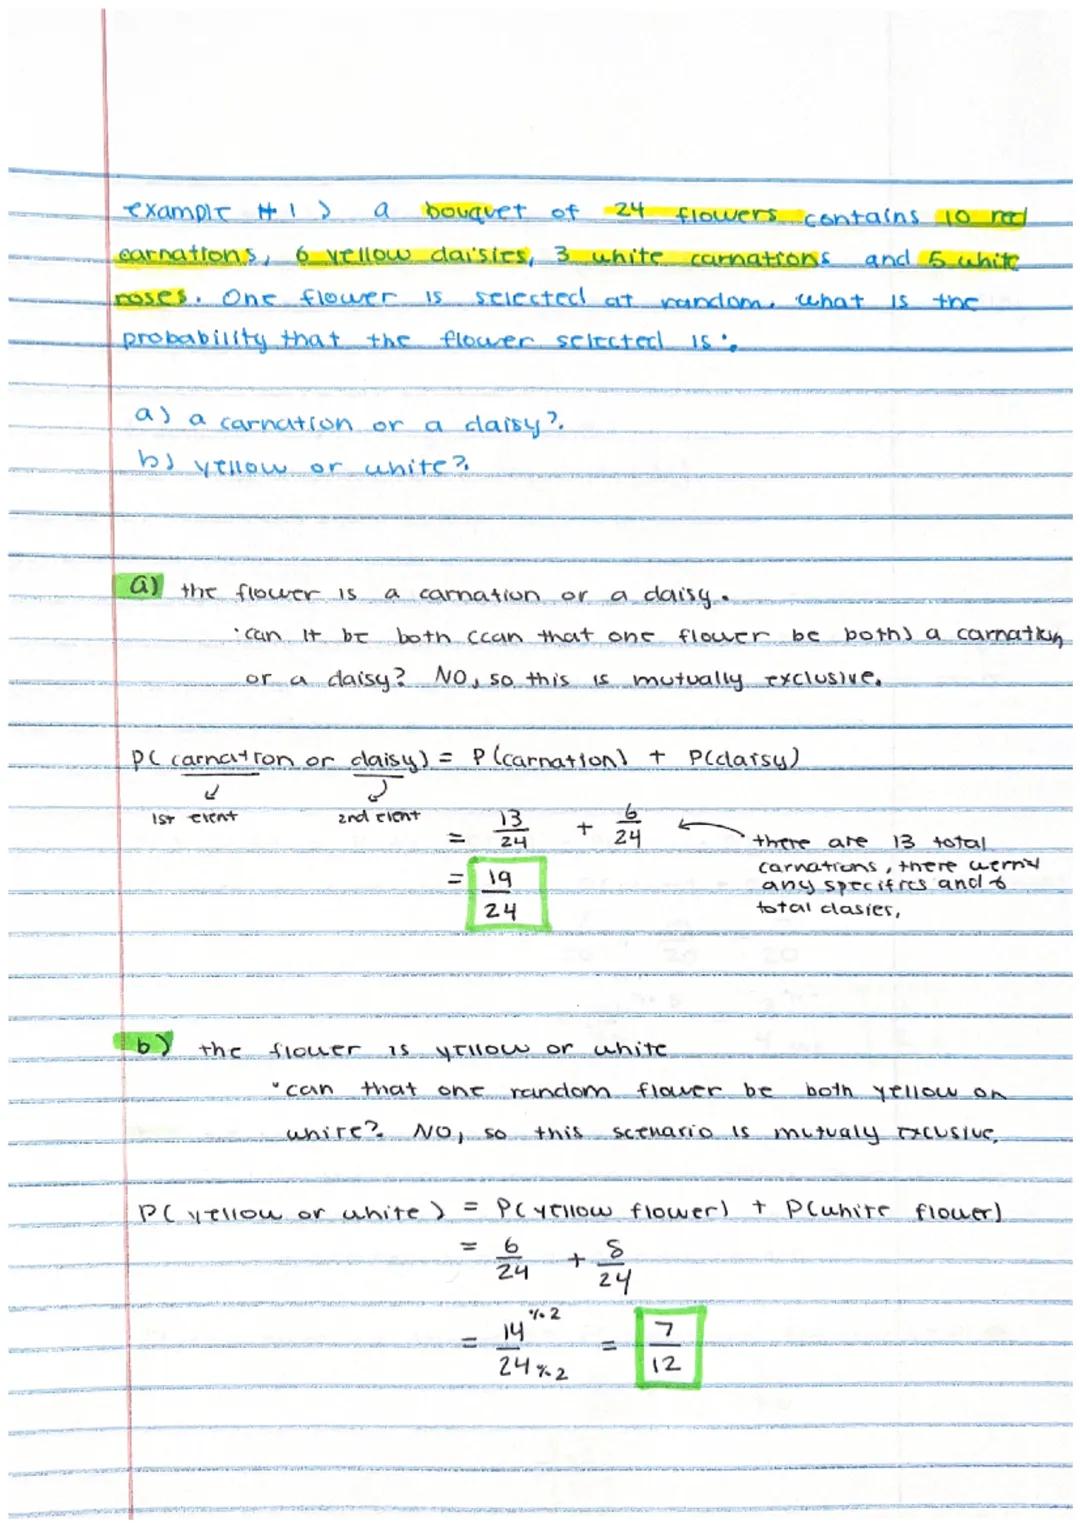 example #1) a bouquet of 24 flowers contains 10 red
carnations, 6 yellow daisies, 3 white carnations and 5 white
roses. One flower is selected at random. what is the
probability that the flower selected is:
a) a carnation or a daisy?
b) yellow or white?
a) the flower is a carnation or a daisy.
·can it be both (can that one flower be both) a carnation
or a daisy? NO, so this is mutually exclusive.
P( carnation or daisy) = P(carnation) + P(daisy)
1st event 2nd event
= 13/24 + 6/24
there are 13 total
carnations, there weren't
any specifics and 6
total dasies,
= 19/24
b) the flower is yellow or white
·can that one random flower be both yellow or
white? NO, so this scenario is mutualy exclusive.
P( yellow or white) = P(yellow flower) + P(white flower)
= 6/24 + 8/24
= 14 ÷2 / 24 ÷2 = 7/12